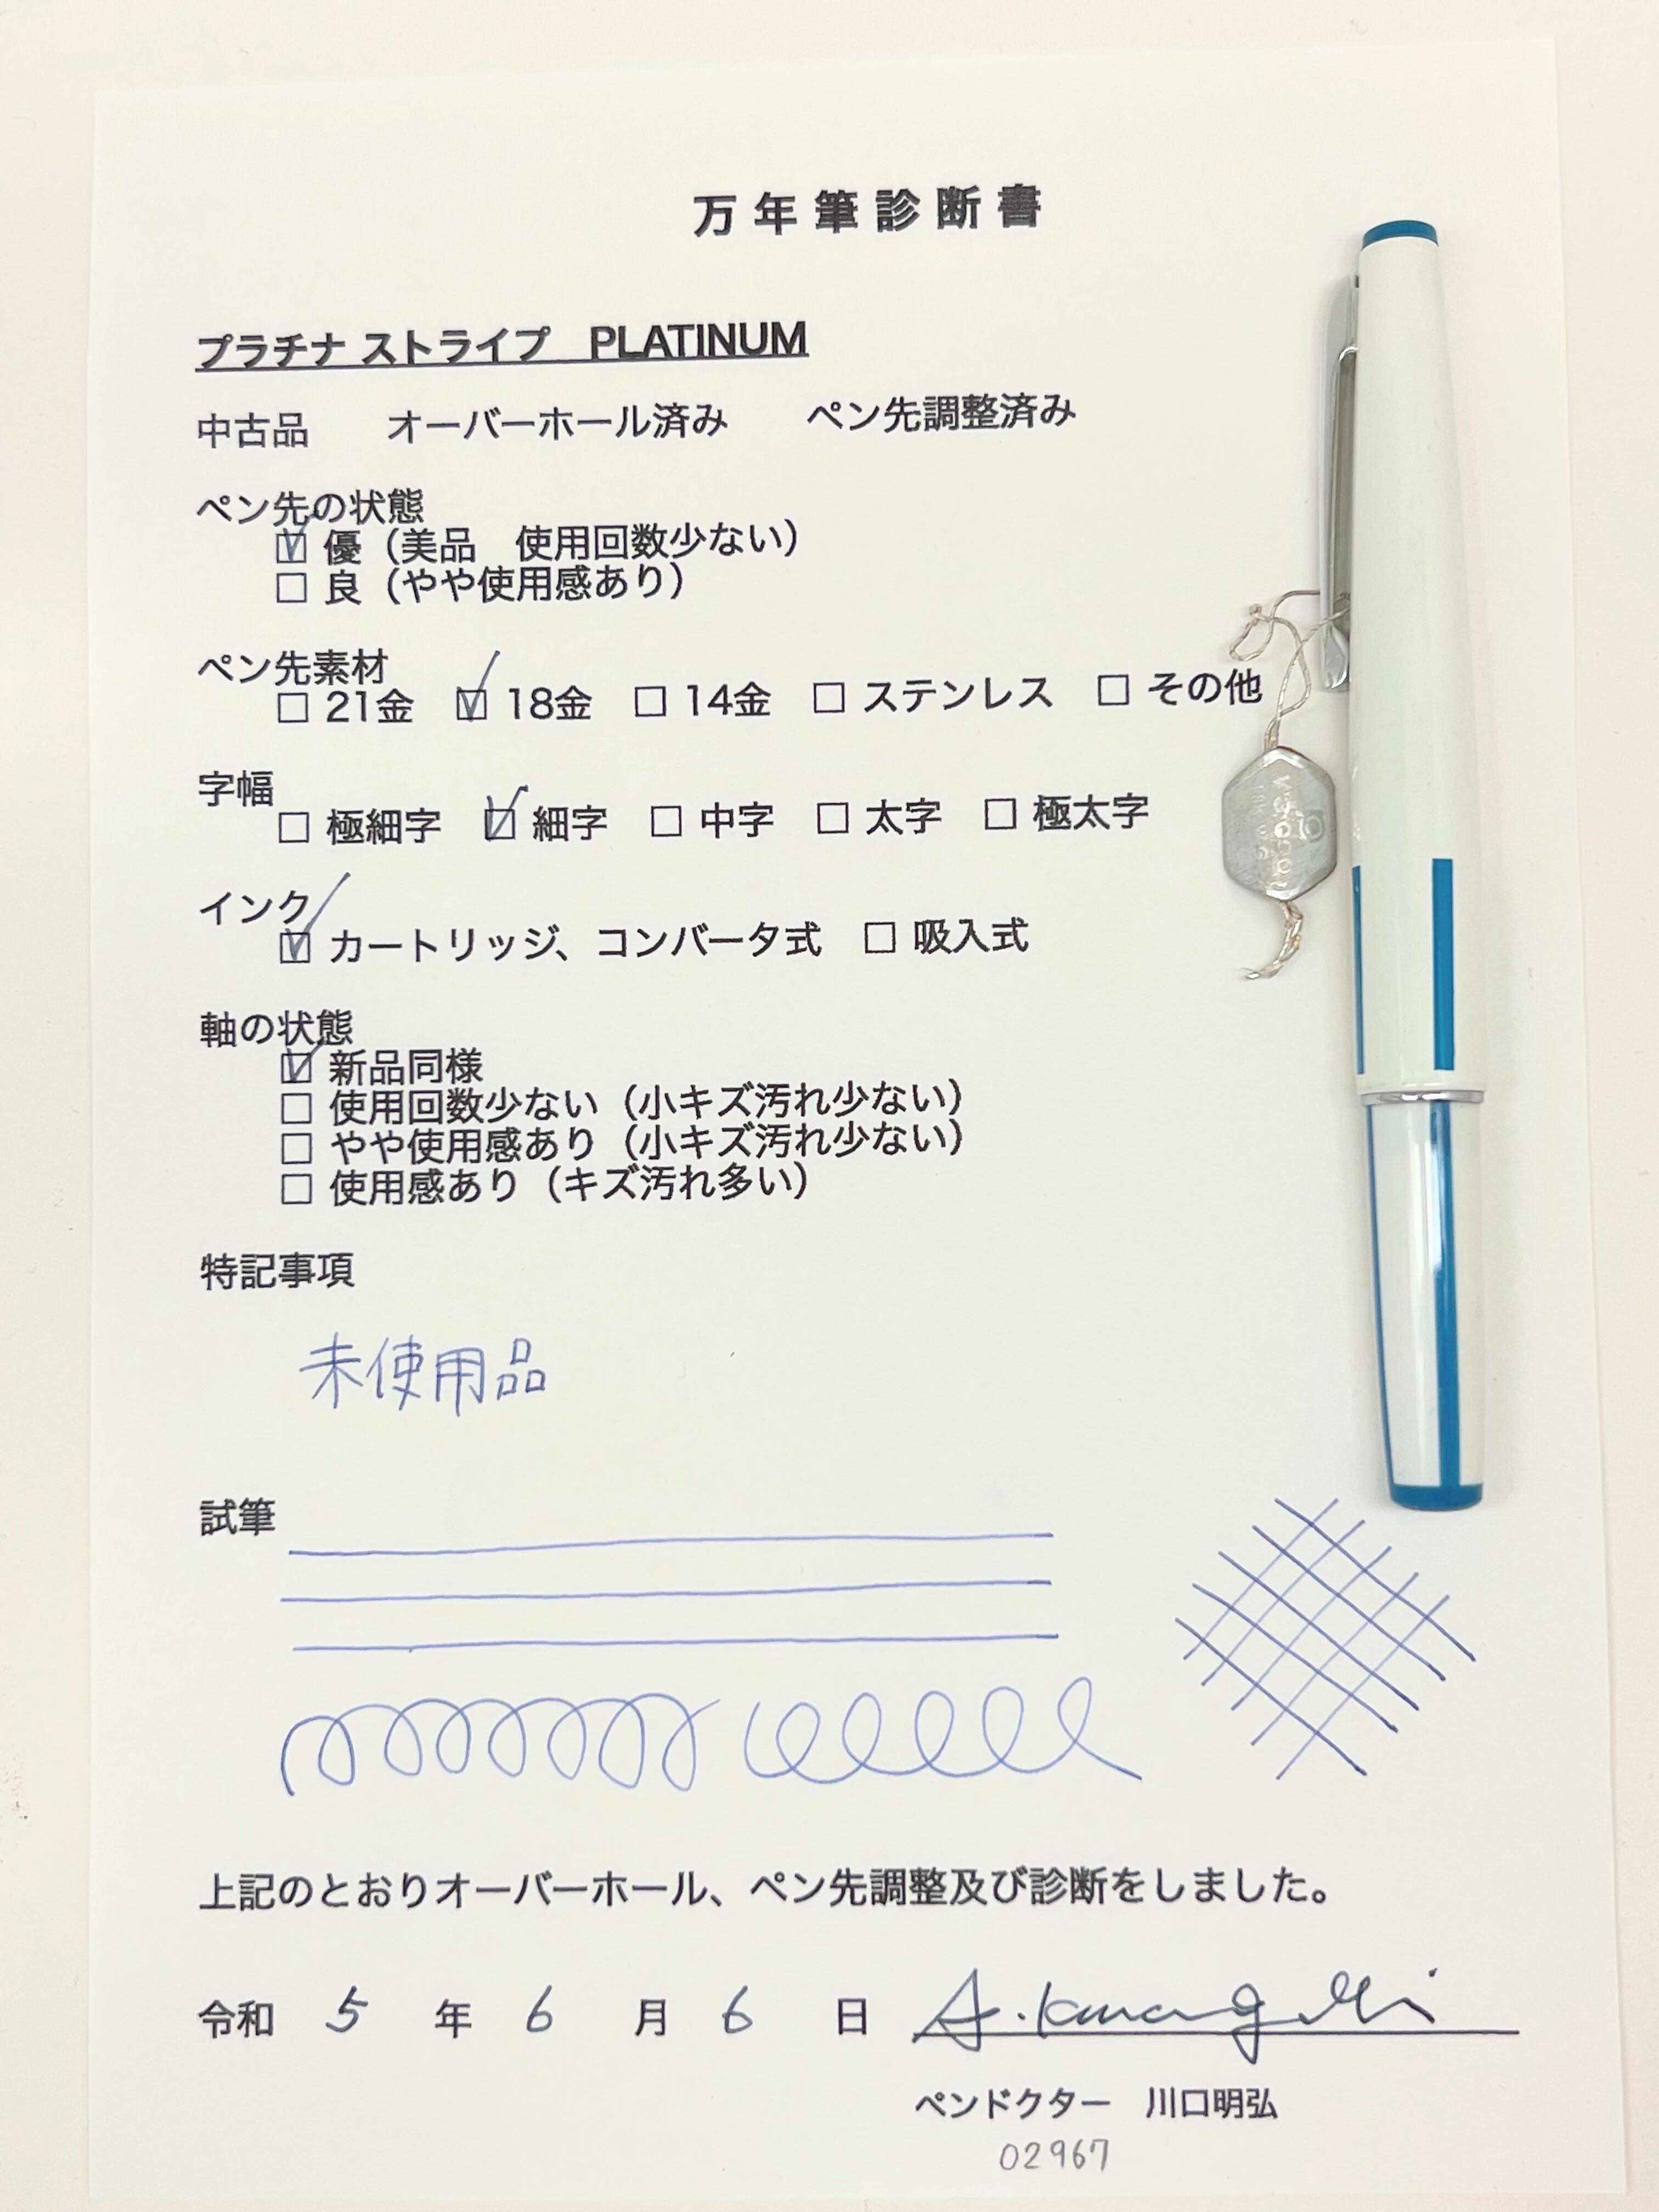 万年筆診断書
プラチナ ストライプ　PLATINUM
中古品　　オーバーホール済み　　ペン先調整済み
ペン先の状態
☑ 優（美品　使用回数少ない）
□ 良（やや使用感あり）
ペン先素材
□ 21金　☑ 18金　□ 14金　□ ステンレス　□ その他
字幅
□ 極細字　☑ 細字　□ 中字　□ 太字　□ 極太字
インク
☑ カートリッジ、コンバータ式　□ 吸入式
軸の状態
☑ 新品同様
□ 使用回数少ない（小キズ汚れ少ない）
□ やや使用感あり（小キズ汚れ少ない）
□ 使用感あり（キズ汚れ多い）
特記事項
未使用品
試筆
上記のとおりオーバーホール、ペン先調整及び診断をしました。
令和 5 年 6 月 6 日 A.Kawaguchi
ペンドクター　川口明弘
02967